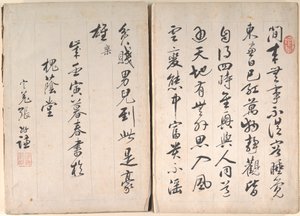 閒來無事不從容睡覺
東窗日已紅萬物靜觀皆
自得四時佳興與人同道
通天地有形外思入風
雲變態中富貴不淫
貧賤男兒到此是豪
雄 樂
寅暮春書於
槐蔭堂
張